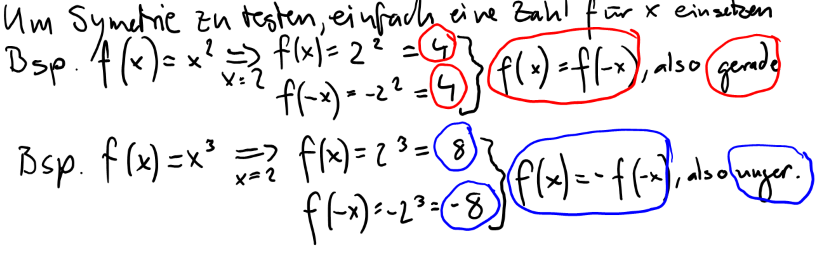 Um Symetrie zu testen, einfach eine Zahl für x einsetzen
Bsp. f(x)=x² ⟹ x=2 f(x)=2² = 4 } f(x)=f(-x), also gerade
f(-x)=-2² = 4
Bsp. f(x)=x³ ⟹ x=2 f(x)=2³= 8 } f(x)=-f(-x), also unger.
f(-x)=-2³=-8